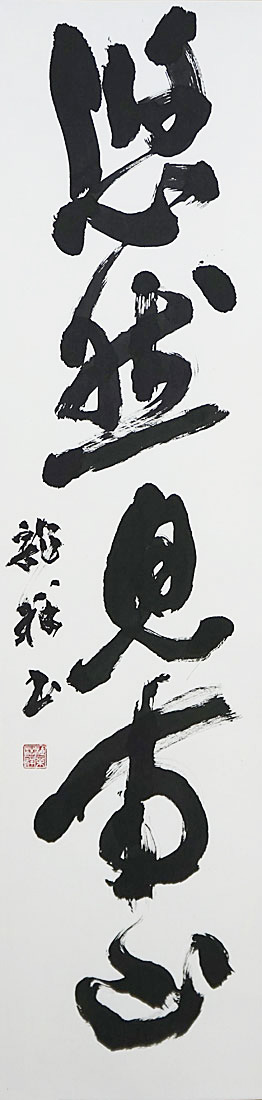 悠然見南山
龍祥書